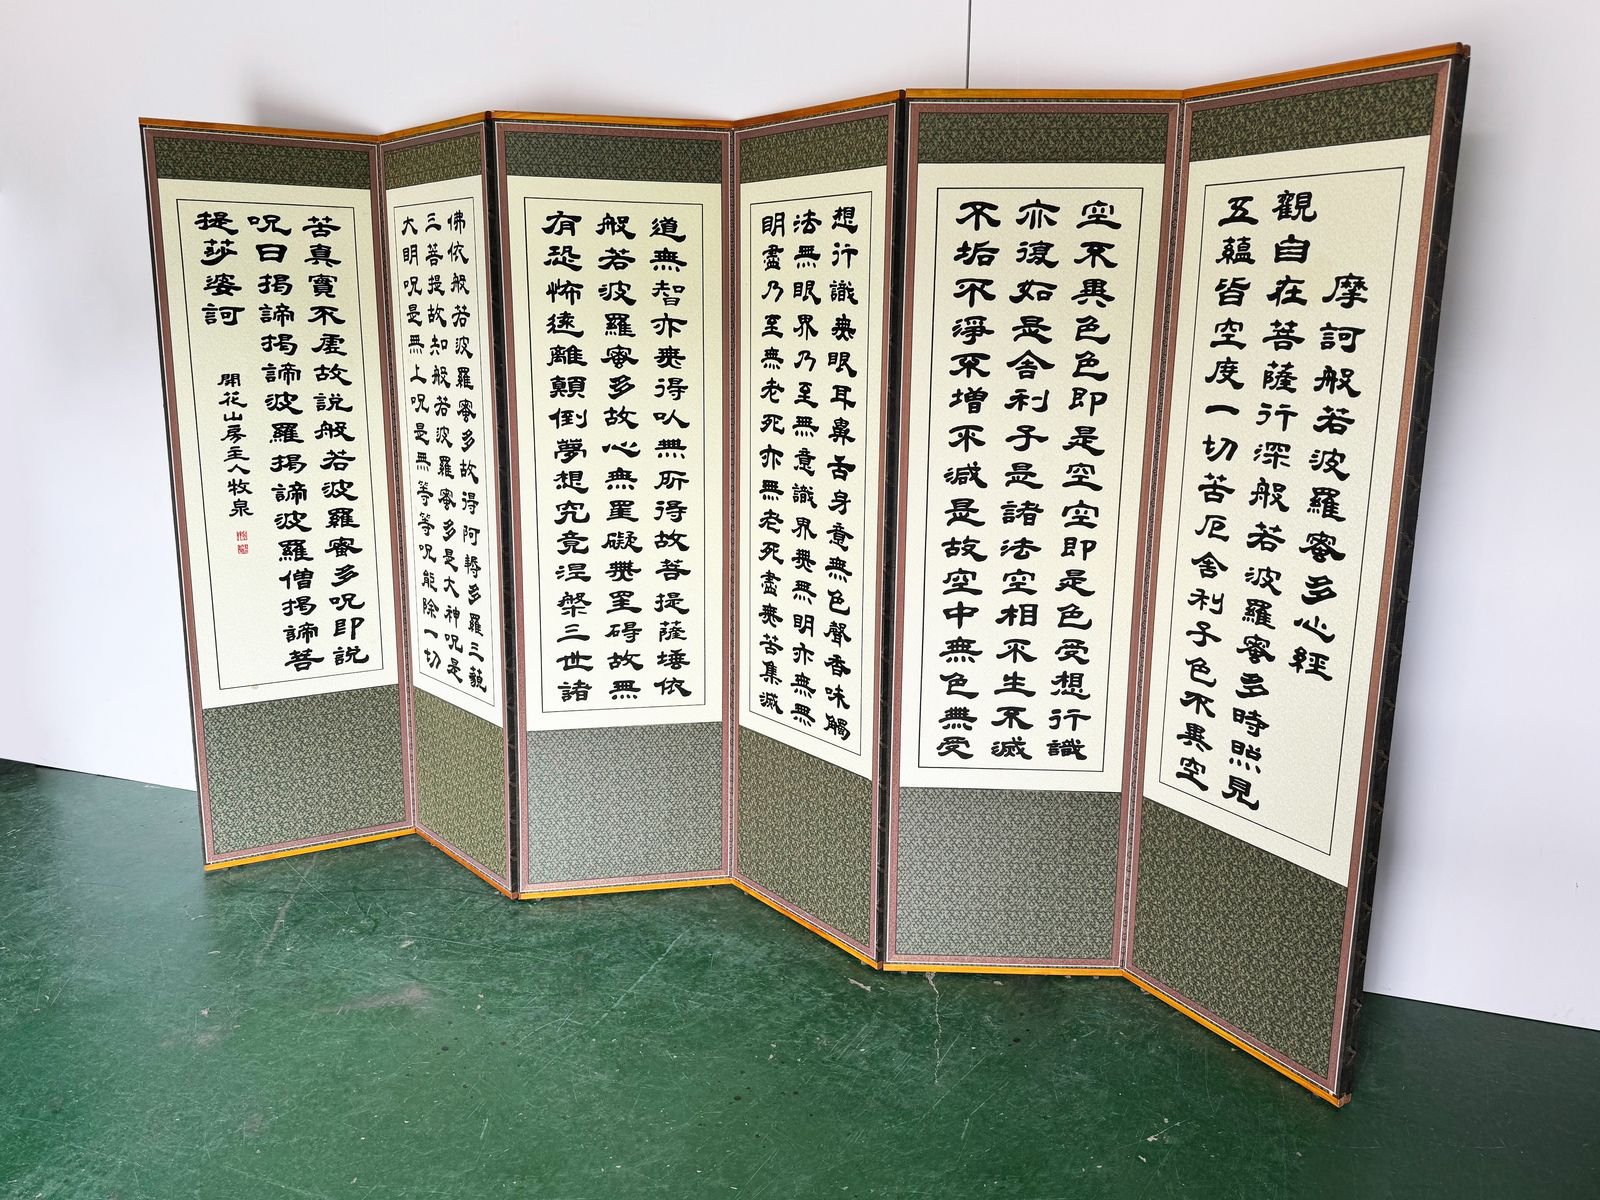 摩訶般若波羅蜜多心經
觀自在菩薩行深般若波羅蜜多時照見
五蘊皆空度一切苦厄舍利子色不異空
空不異色色即是空空即是色受想行識
亦復如是舍利子是諸法空相不生不滅
不垢不淨不增不減是故空中無色無受
想行識無眼耳鼻舌身意無色聲香味觸
法無眼界乃至無意識界無無明亦無無
明盡乃至無老死亦無老死盡無苦集滅
道無智亦無得以無所得故菩提薩埵依
般若波羅蜜多故心無罣礙無罣碍故無
有恐怖遠離顛倒夢想究竟涅槃三世諸
佛依般若波羅蜜多故得阿耨多羅三藐
三菩提故知般若波羅蜜多是大神呪是
大明呪是無上呪是無等等呪能除一切
苦真實不虛故說般若波羅蜜多呪即說
呪曰揭諦揭諦波羅揭諦波羅僧揭諦菩
提莎婆訶
開花山房主人牧泉